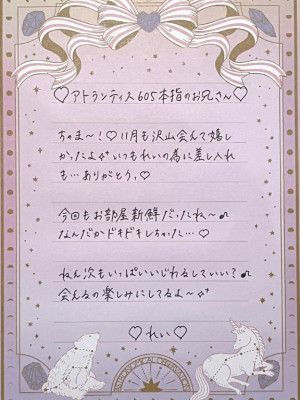 ♡アトランティス605本指のお兄さん♡
ちゃま〜!♡11月も沢山会えて嬉し
かったよ♂いつもれいの為に差し入れ
も…ありがとう。♡
今回もお部屋新鮮だったね〜♪
なんだかドキドキしちゃた…♡
ねん次もいっぱいいじわるしていい?♪
会えるの楽しみにしてるよ〜
♡れい♡